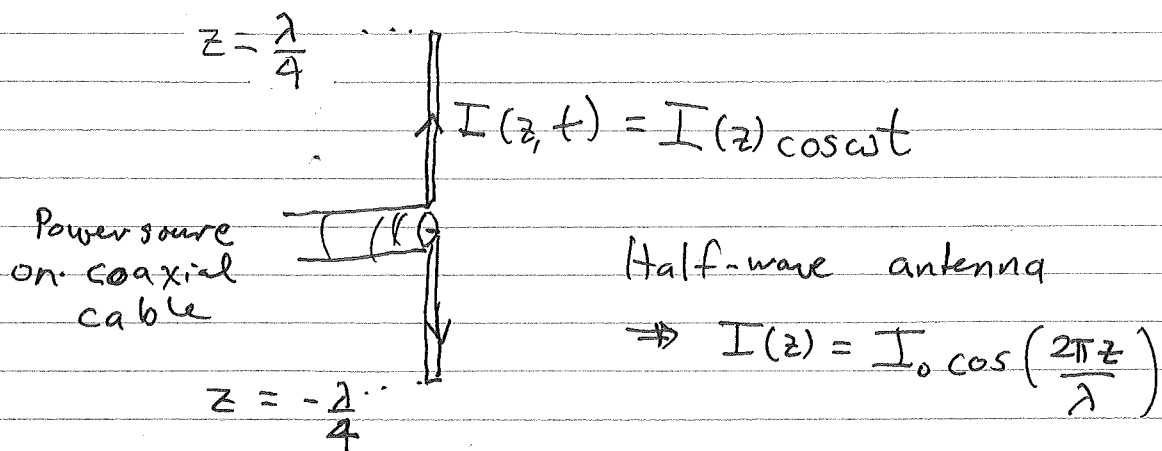 z = λ/4
I(z, t) = I(z) cos ωt
Power soure
on coaxial
cable
Half-wave antenna
⇒ I(z) = I₀ cos(2πz/λ)
z = -λ/4